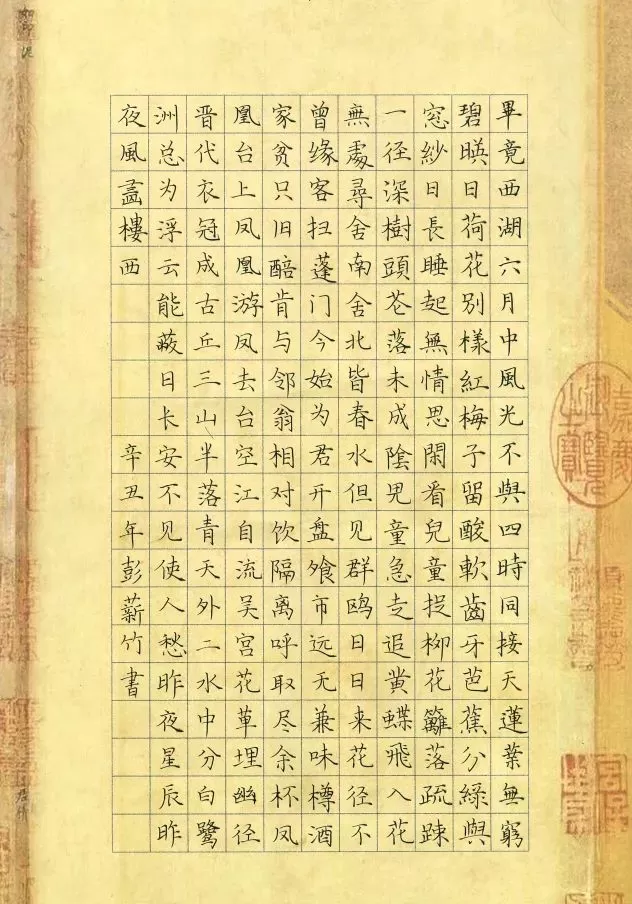 畢竟西湖六月中風光不與四時同接天蓮葉無窮
碧暎日荷花別樣紅梅子留酸軟齒牙芭蕉分綠與
窓紗日長睡起無情思閑看兒童捉柳花籬落疏踈
一径深樹頭花落未成陰児童急走追黄蝶飛入花
無處尋舍南舍北皆春水但见群鸥日日来花径不
曾缘客扫蓬门今始为君开盘飧市远无兼味樽酒
家贫只旧醅肯与邻翁相对饮隔离呼取尽余杯凤
凰台上凤凰游凤去台空江自流吴宫花草埋幽径
晋代衣冠成古丘三山半落青天外二水中分白鹭
洲总为浮云能蔽日长安不见使人愁昨夜星辰昨
夜風畫樓西
辛丑年彭薪竹書
嘉慶御覽之寶